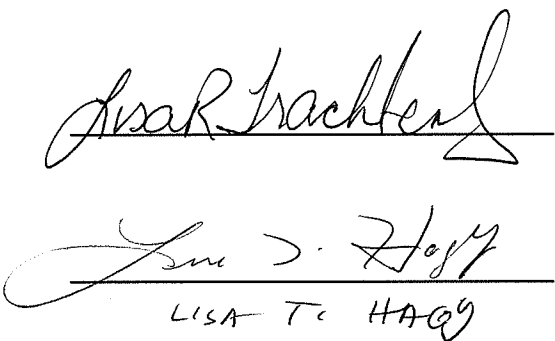 Lisa R Trachtenberg
Lisa T. Hagy
LISA T. HAGY